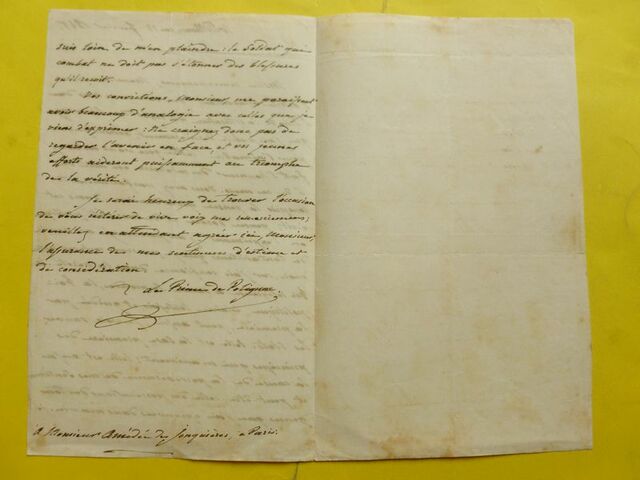 suis loin de m'en plaindre : le soldat qui
combat ne doit pas s'étonner des blessures
qu'il reçoit.
Vos convictions, Monsieur, me paraissent
avoir beaucoup d'analogie avec celles que je
viens d'exprimer : Ne craignez donc pas de
regarder l'avenir en face, et vos jeunes
efforts aideront puissamment au triomphe
de la vérité.
Je serai heureux de trouver l'occasion
de vous réitérer de vive voix mes remerciemens;
veuillez en attendant agréer ici, Monsieur,
l'assurance de mes sentimens d'estime et
de considération
Le Prince de Polignac
A Monsieur Amédée de Jonquières, a Paris.